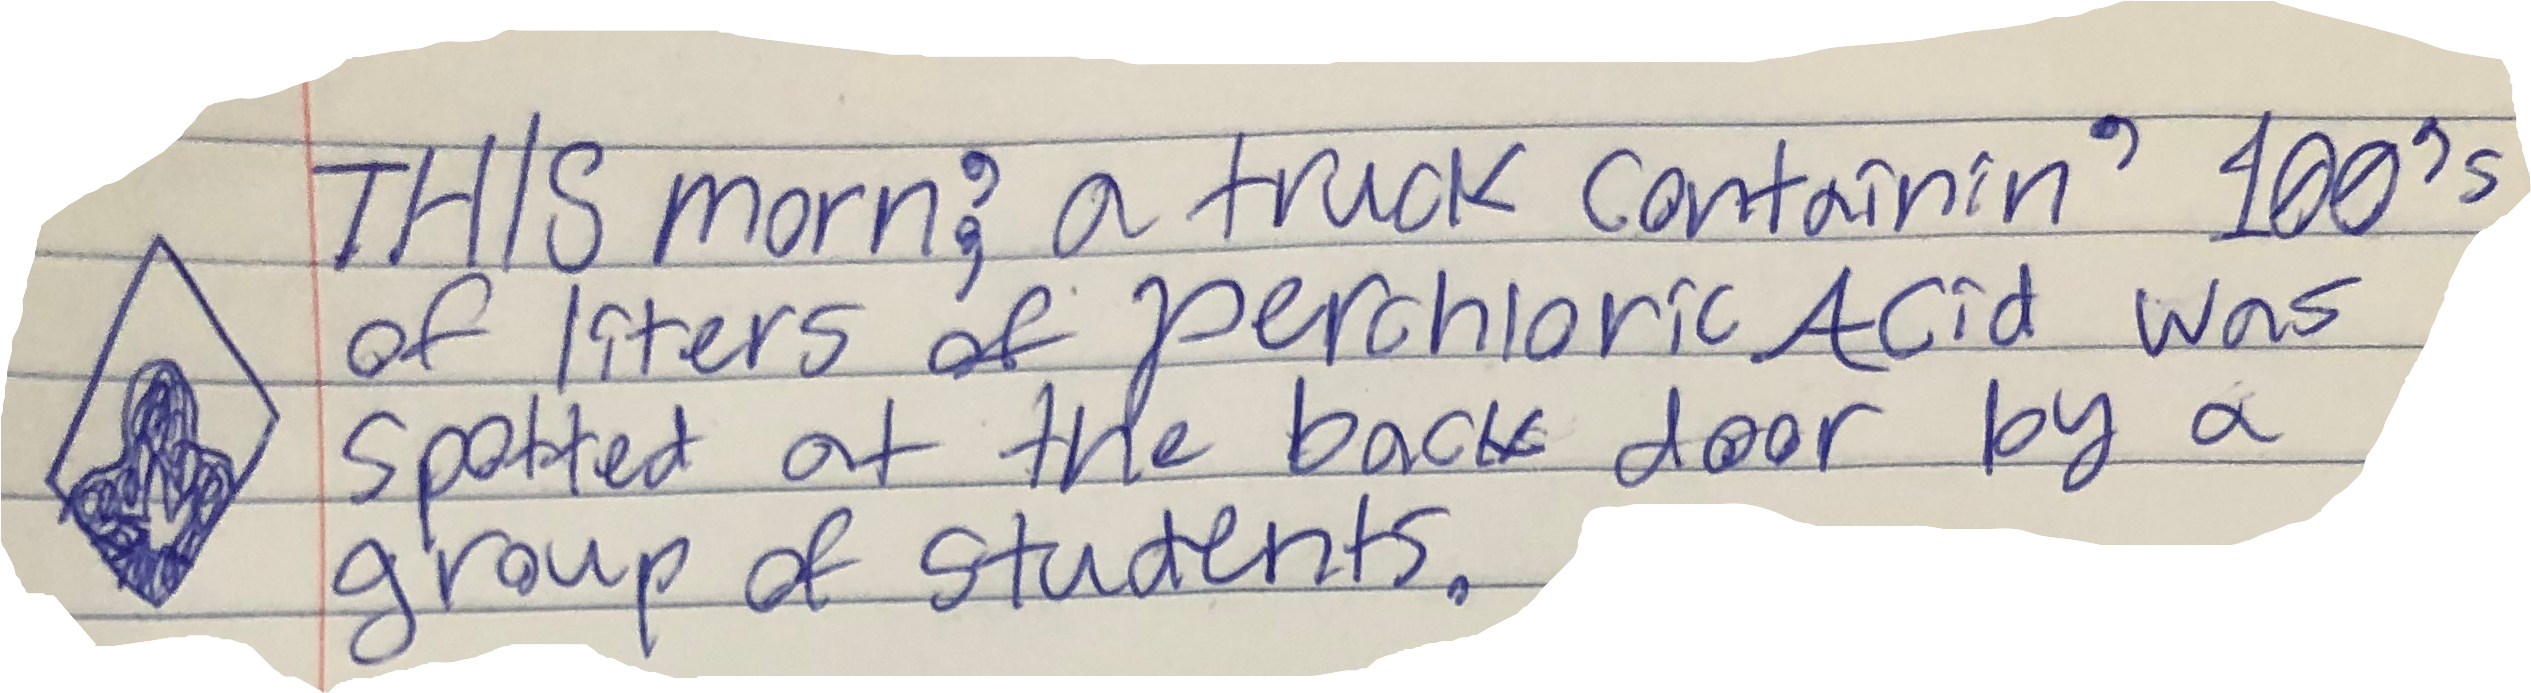 THIS morn', a truck containin' 100's
of liters of perchloric Acid was
spotted at the back door by a
group of students.